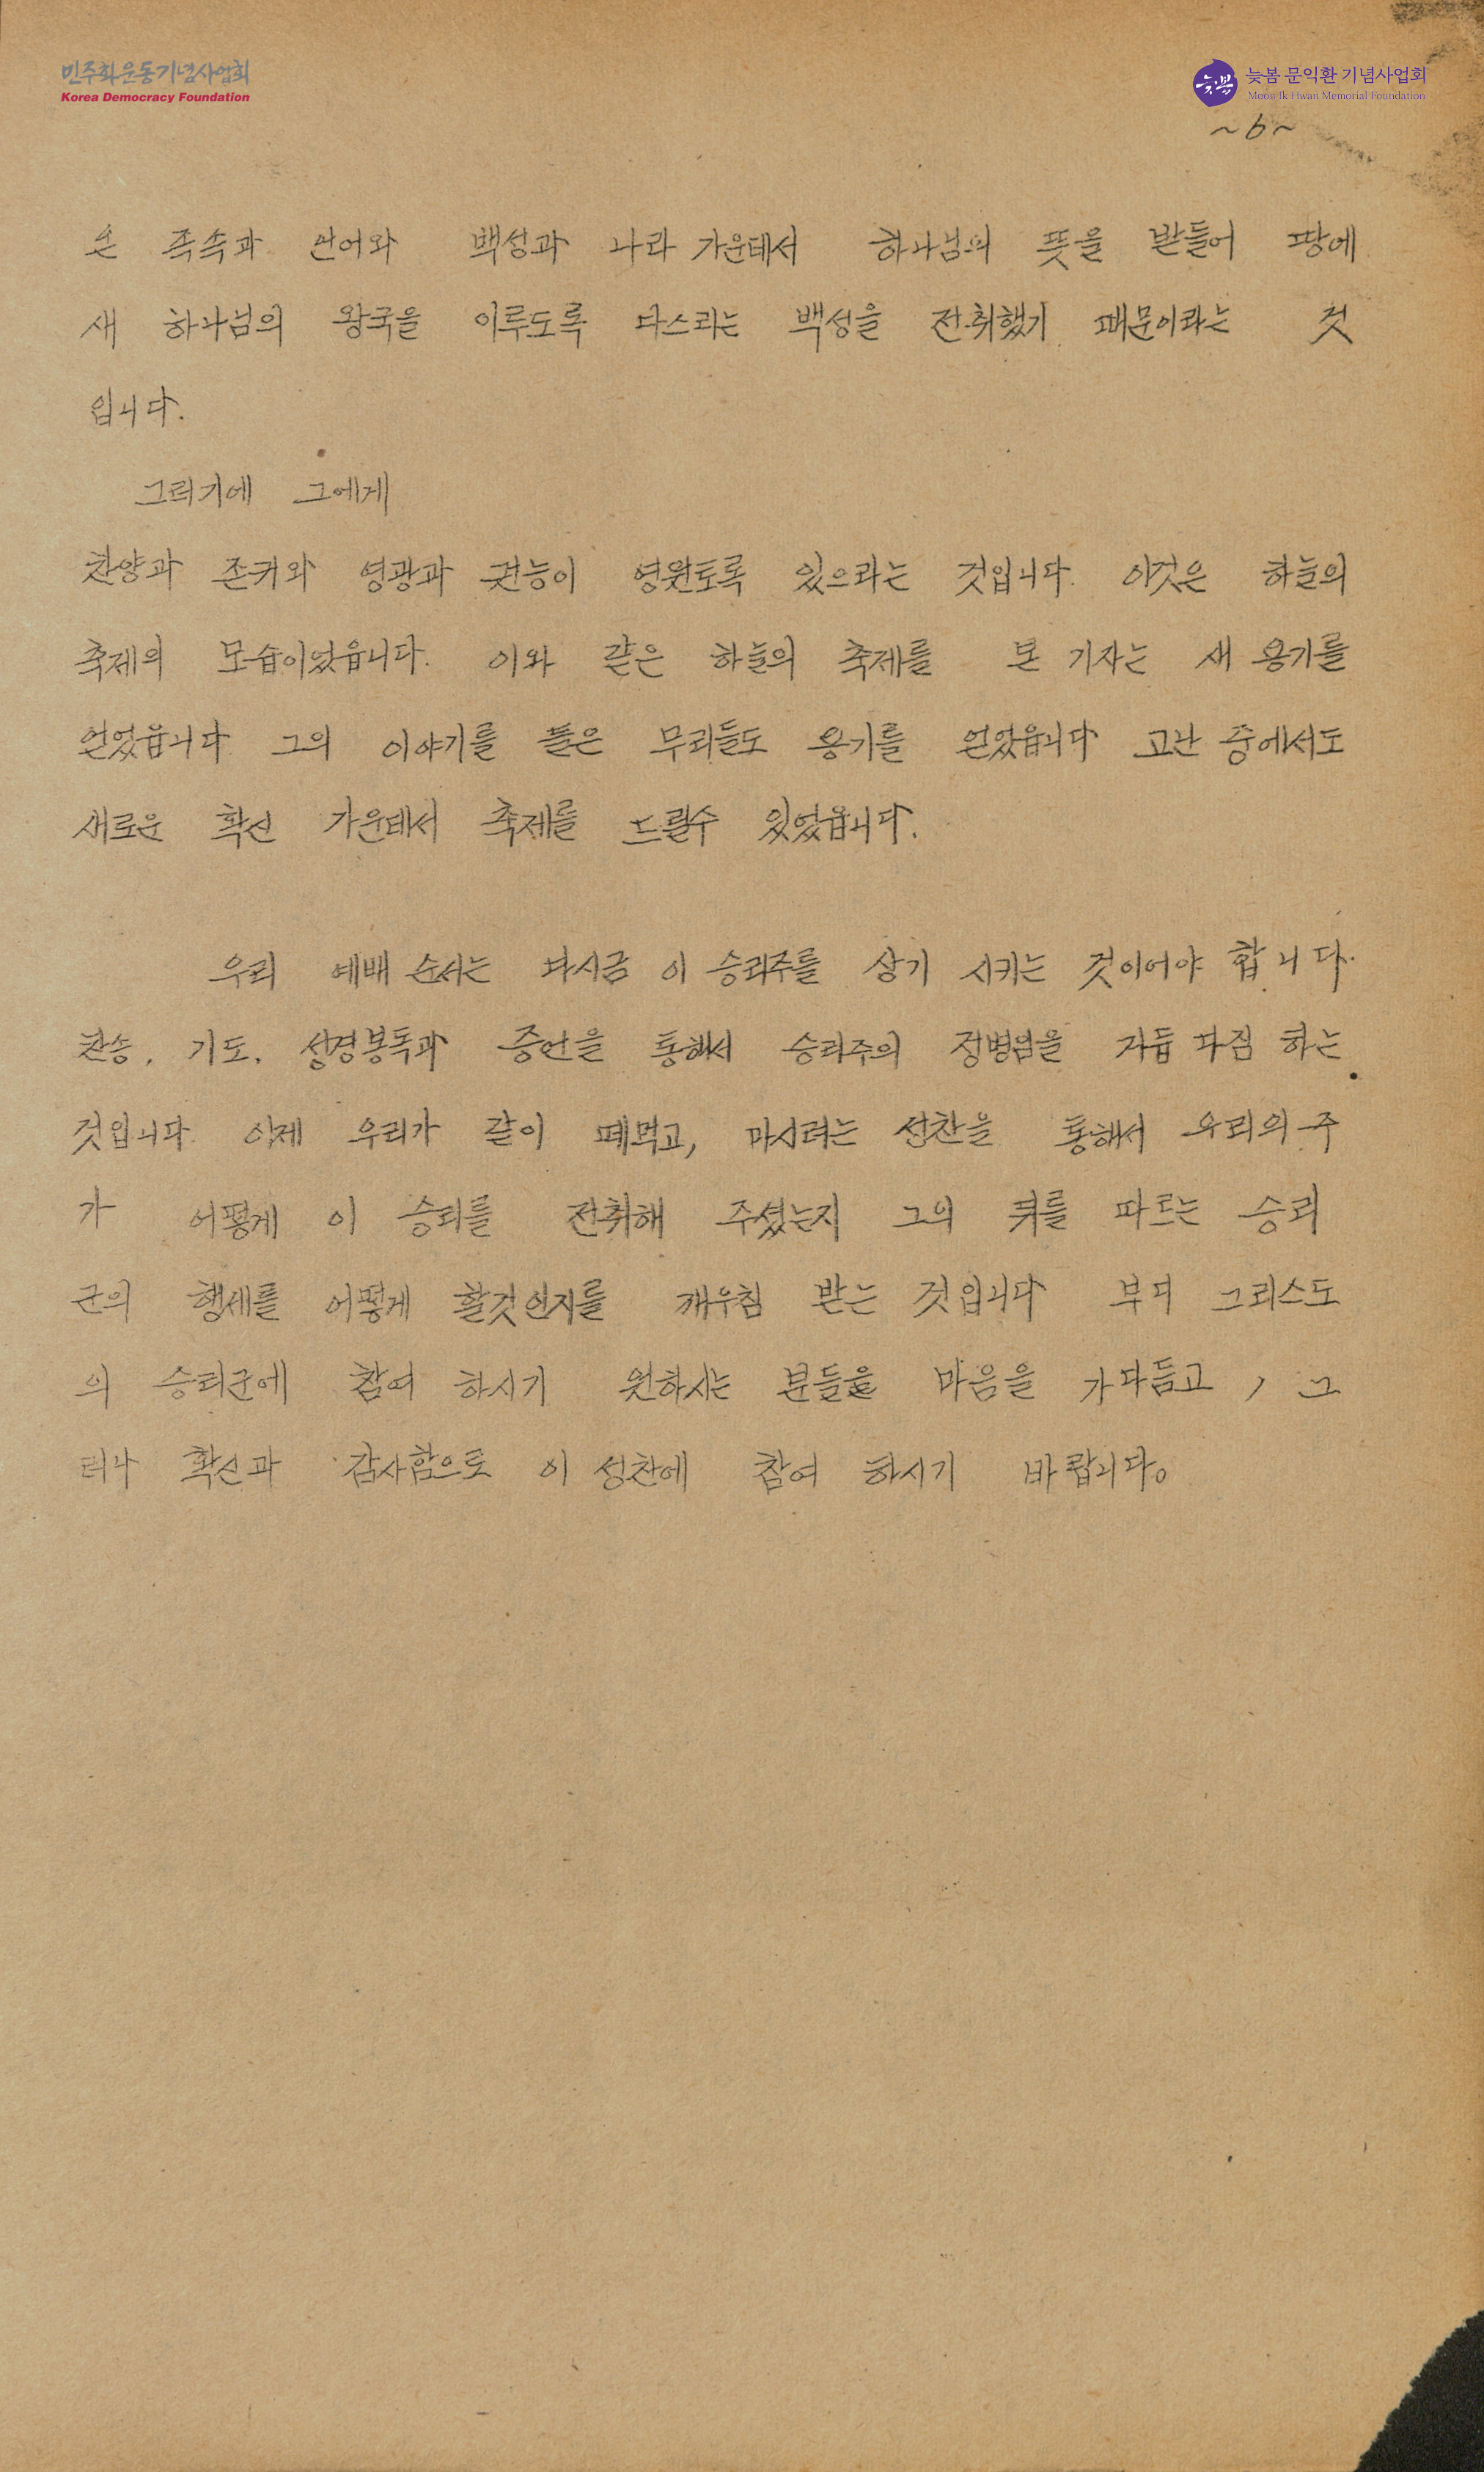 민주화운동기념사업회
Korea Democracy Foundation
늦봄
늦봄 문익환 기념사업회
Moon Ik Hwan Memorial Foundation
~6~
은 족속과 언어와 백성과 나라 가운데서 하나님의 뜻을 받들어 땅에
새 하나님의 왕국을 이루도록 다스리는 백성을 전취했기 때문이라는 것
입니다.
그러기에 그에게
찬양과 존귀와 영광과 권능이 영원토록 있으라는 것입니다. 이것은 하늘의
축제의 모습이었읍니다. 이와 같은 하늘의 축제를 본 기자는 새 용기를
얻었읍니다 그의 이야기를 들은 무리들도 용기를 얻었읍니다 고난 중에서도
새로운 확신 가운데서 축제를 드릴수 있었읍니다.
우리 예배 순서는 다시금 이 승리주를 상기 시키는 것이어야 합니다.
찬송, 기도, 성경봉독과 증언을 통해서 승리주의 정병됨을 거듭 다짐 하는
것입니다 이제 우리가 같이 떼먹고, 마시려는 성찬을 통해서 우리의 주
가 어떻게 이 승리를 전취해 주셨는지 그의 뒤를 따르는 승리
군의 행세를 어떻게 할것인지를 깨우침 받는 것입니다 부디 그리스도
의 승리군에 참여 하시기 원하시는 분들을 마음을 가다듬고, 그
러나 확신과 감사함으로 이 성찬에 참여 하시기 바랍니다.